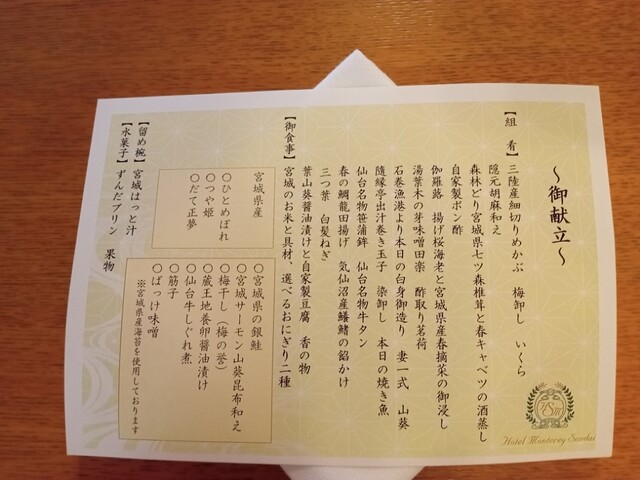 ～御献立～
【組 肴】三陸産細切りめかぶ 梅卸し いくら
隠元胡麻和え
森林どり宮城県七ツ森椎茸と春キャベツの酒蒸し
自家製ポン酢
伽羅蕗 揚げ桜海老と宮城県産春摘菜の御浸し
湯葉木の芽味噌田楽 酢取り茗荷
石巻漁港より本日の白身御造り 妻一式 山葵
随縁亭出汁巻き玉子 染卸し 本日の焼き魚
仙台名物笹蒲鉾 仙台名物牛タン
春の鯛龍田揚げ 気仙沼産鱶鰭の餡かけ
三つ葉 白髪ねぎ
葉山葵醤油漬けと自家製豆腐 香の物
【御食事】宮城のお米と具材、選べるおにぎり二種
宮城県産
〇ひとめぼれ
〇つや姫
〇だて正夢
〇宮城県の銀鮭
〇宮城サーモン山葵昆布和え
〇梅干し（梅の誉）
〇蔵王地養卵醤油漬け
〇仙台牛しぐれ煮
〇筋子
〇ばっけ味噌
※宮城県産海苔を使用しております
【留め椀】宮城はっと汁
【水菓子】ずんだプリン 果物
Hotel Monterey Sendai